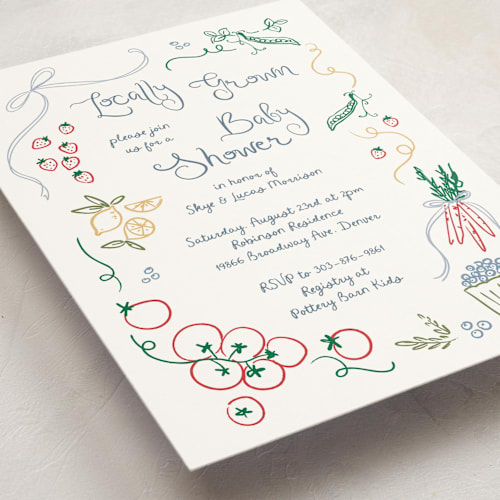 Locally Grown
please join
us for a
Baby
Shower
in honor of
Skye & Lucas Morrison
Saturday, August 23rd at 2pm
Robinson Residence
19866 Broadway Ave. Denver
RSVP to 303-876-9861
Registry at
Pottery Barn Kids